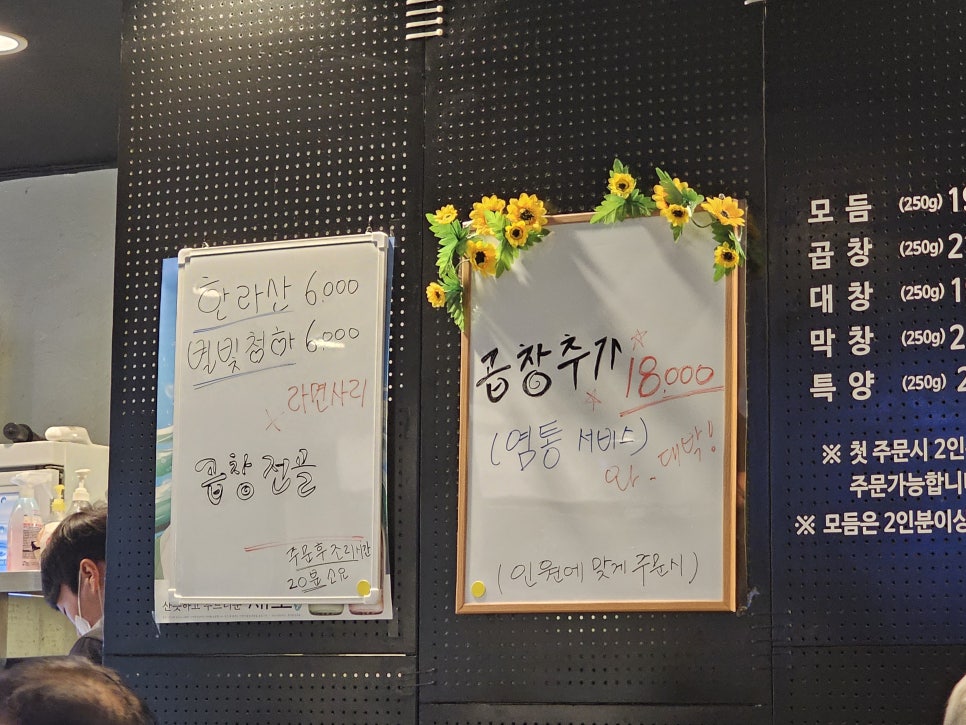 한라산 6.000
별빛청하 6.000
라면사리
곱창전골
주문후조리시간
20분소요
곱창추가 18.000
(염통 서비스)
와. 대박!
(인원에 맞게 주문시)
모듬 (250g)
곱창 (250g)
대창 (250g)
막창 (250g)
특양 (250g)
※ 첫 주문시 2인
주문가능합니
※ 모듬은 2인분이상